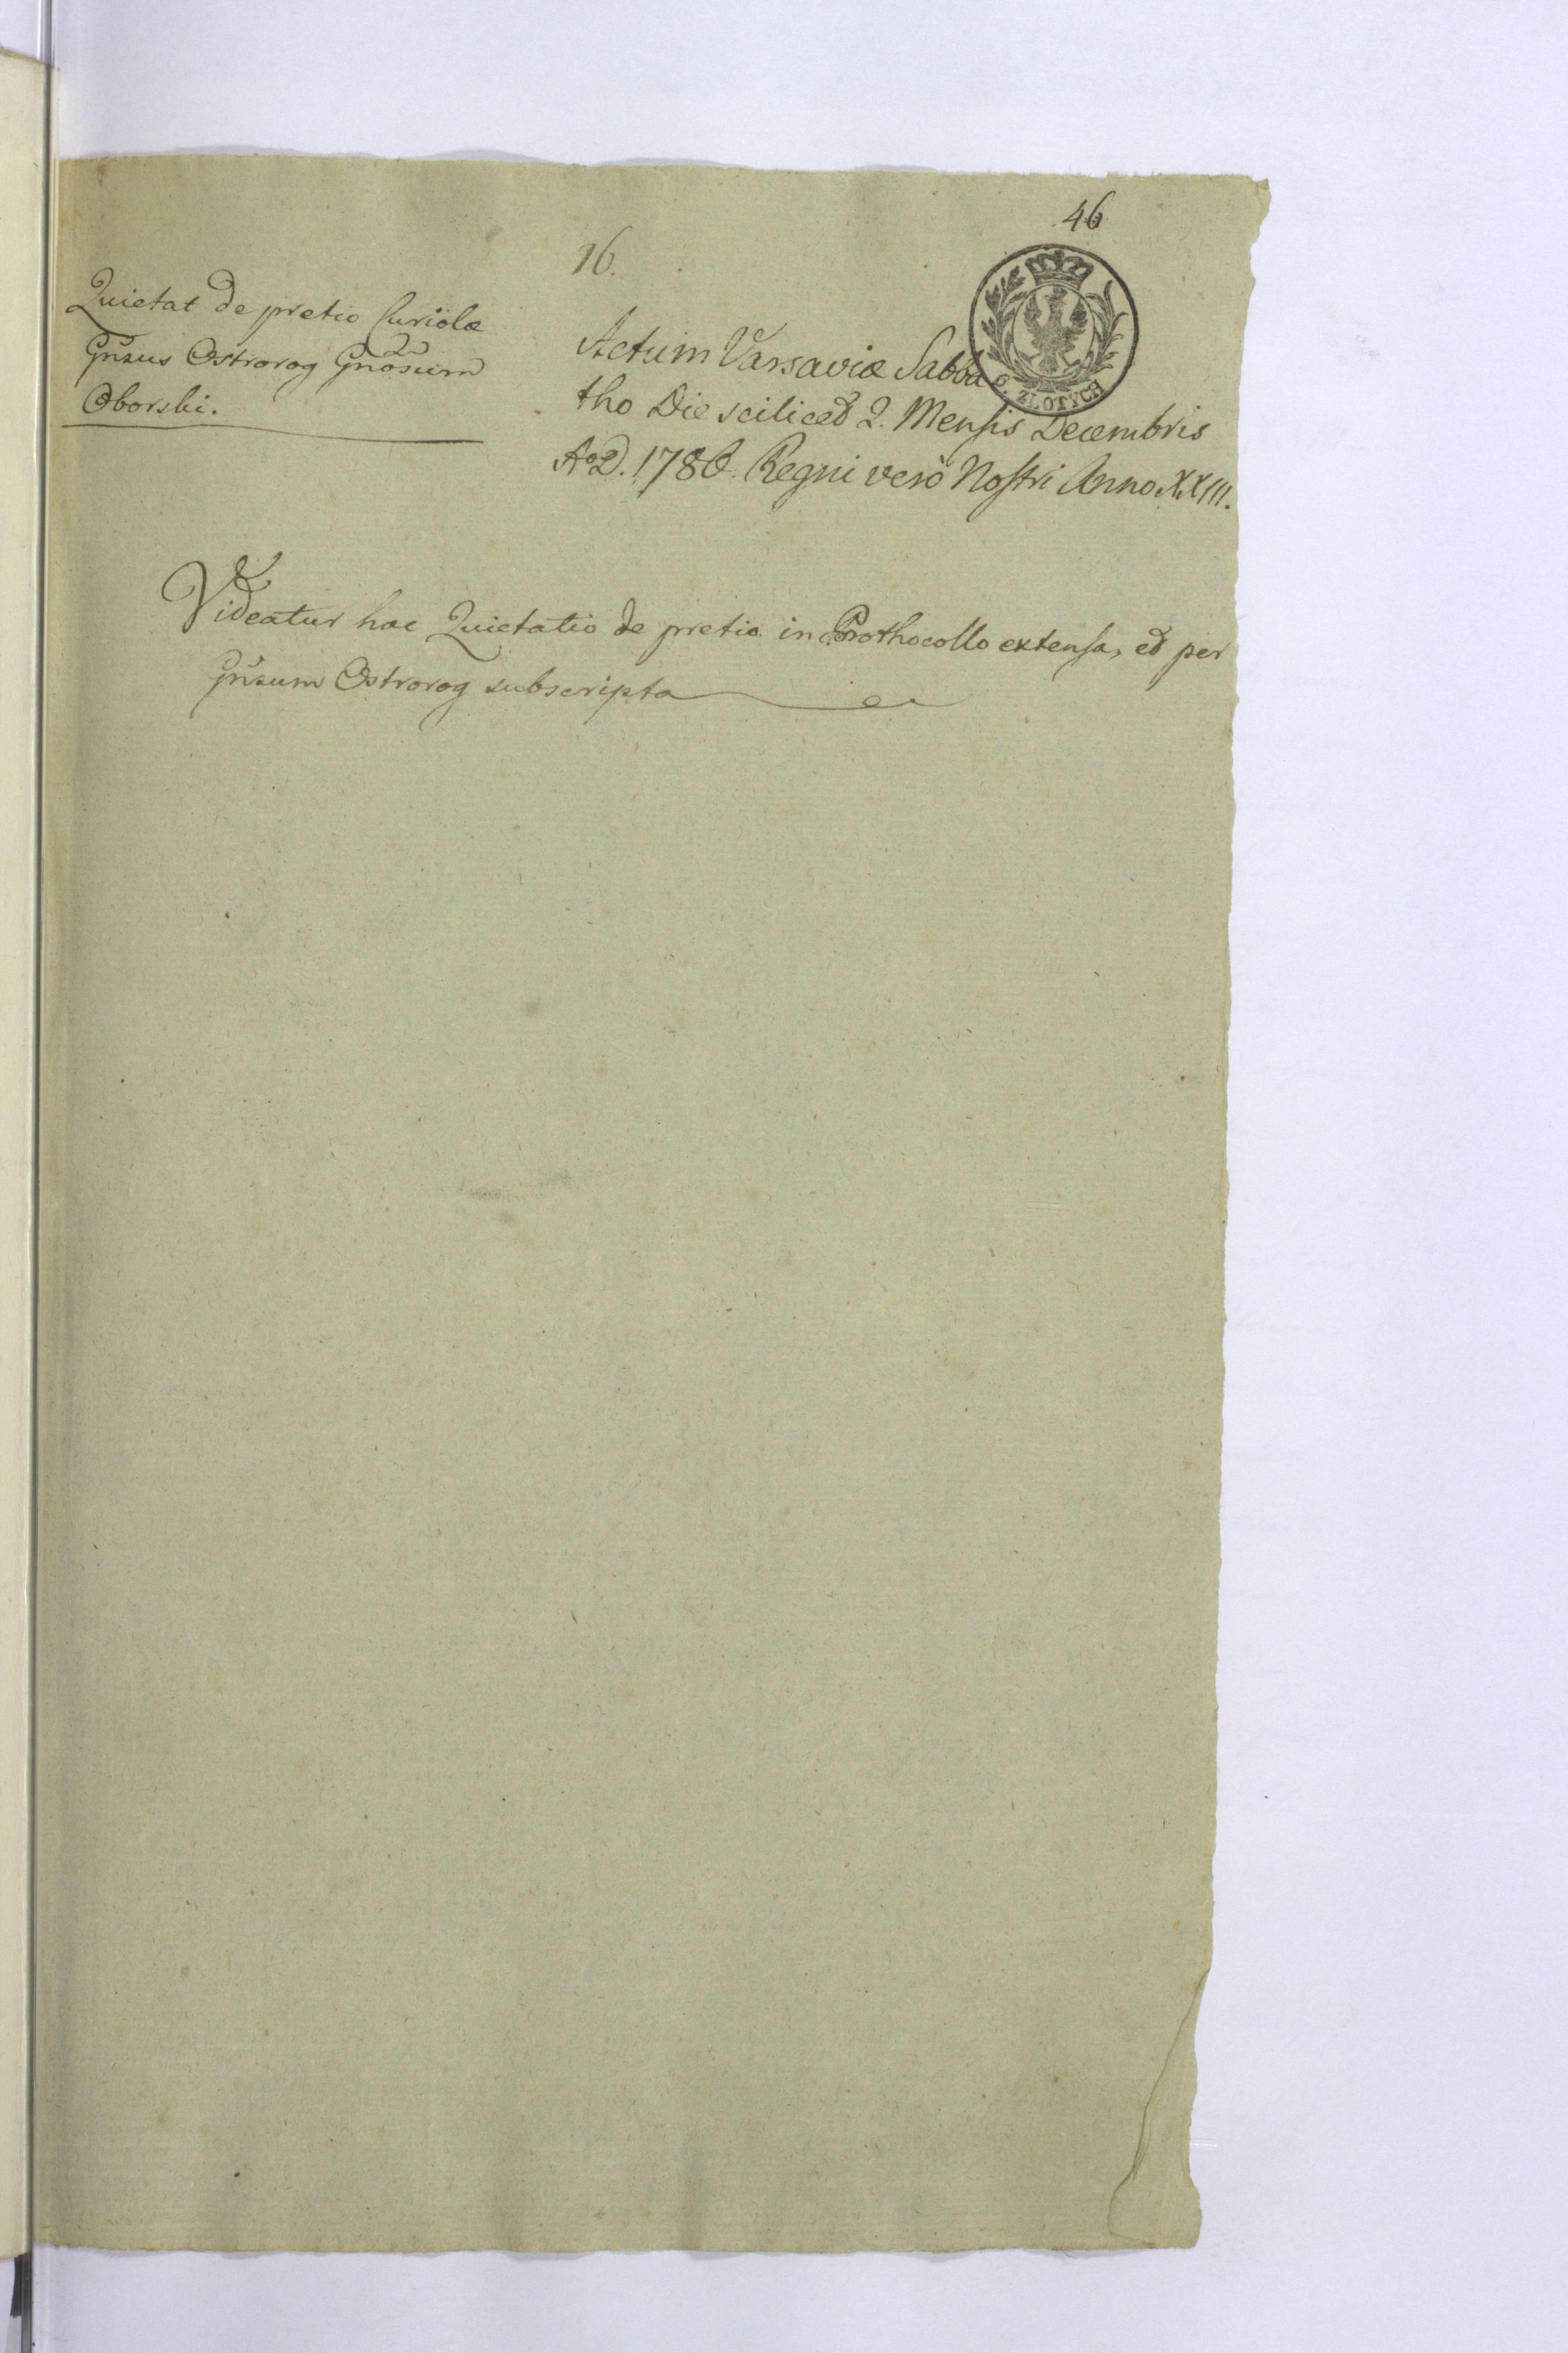 46
16.
Quietat de pretio Curiolæ
Gnsus Ostrorog Gnosum
Oborski.
Actum Varsaviæ Sabba
tho Die scilicet 2. Mensis Decembris
AoD. 1786. Regni vero Nostri Anno XXIII.
6. ZŁOTYCH
Videatur hac Quietatio de pretio in Prothocollo extensa, et per
Gnsum Ostrorog subscripta